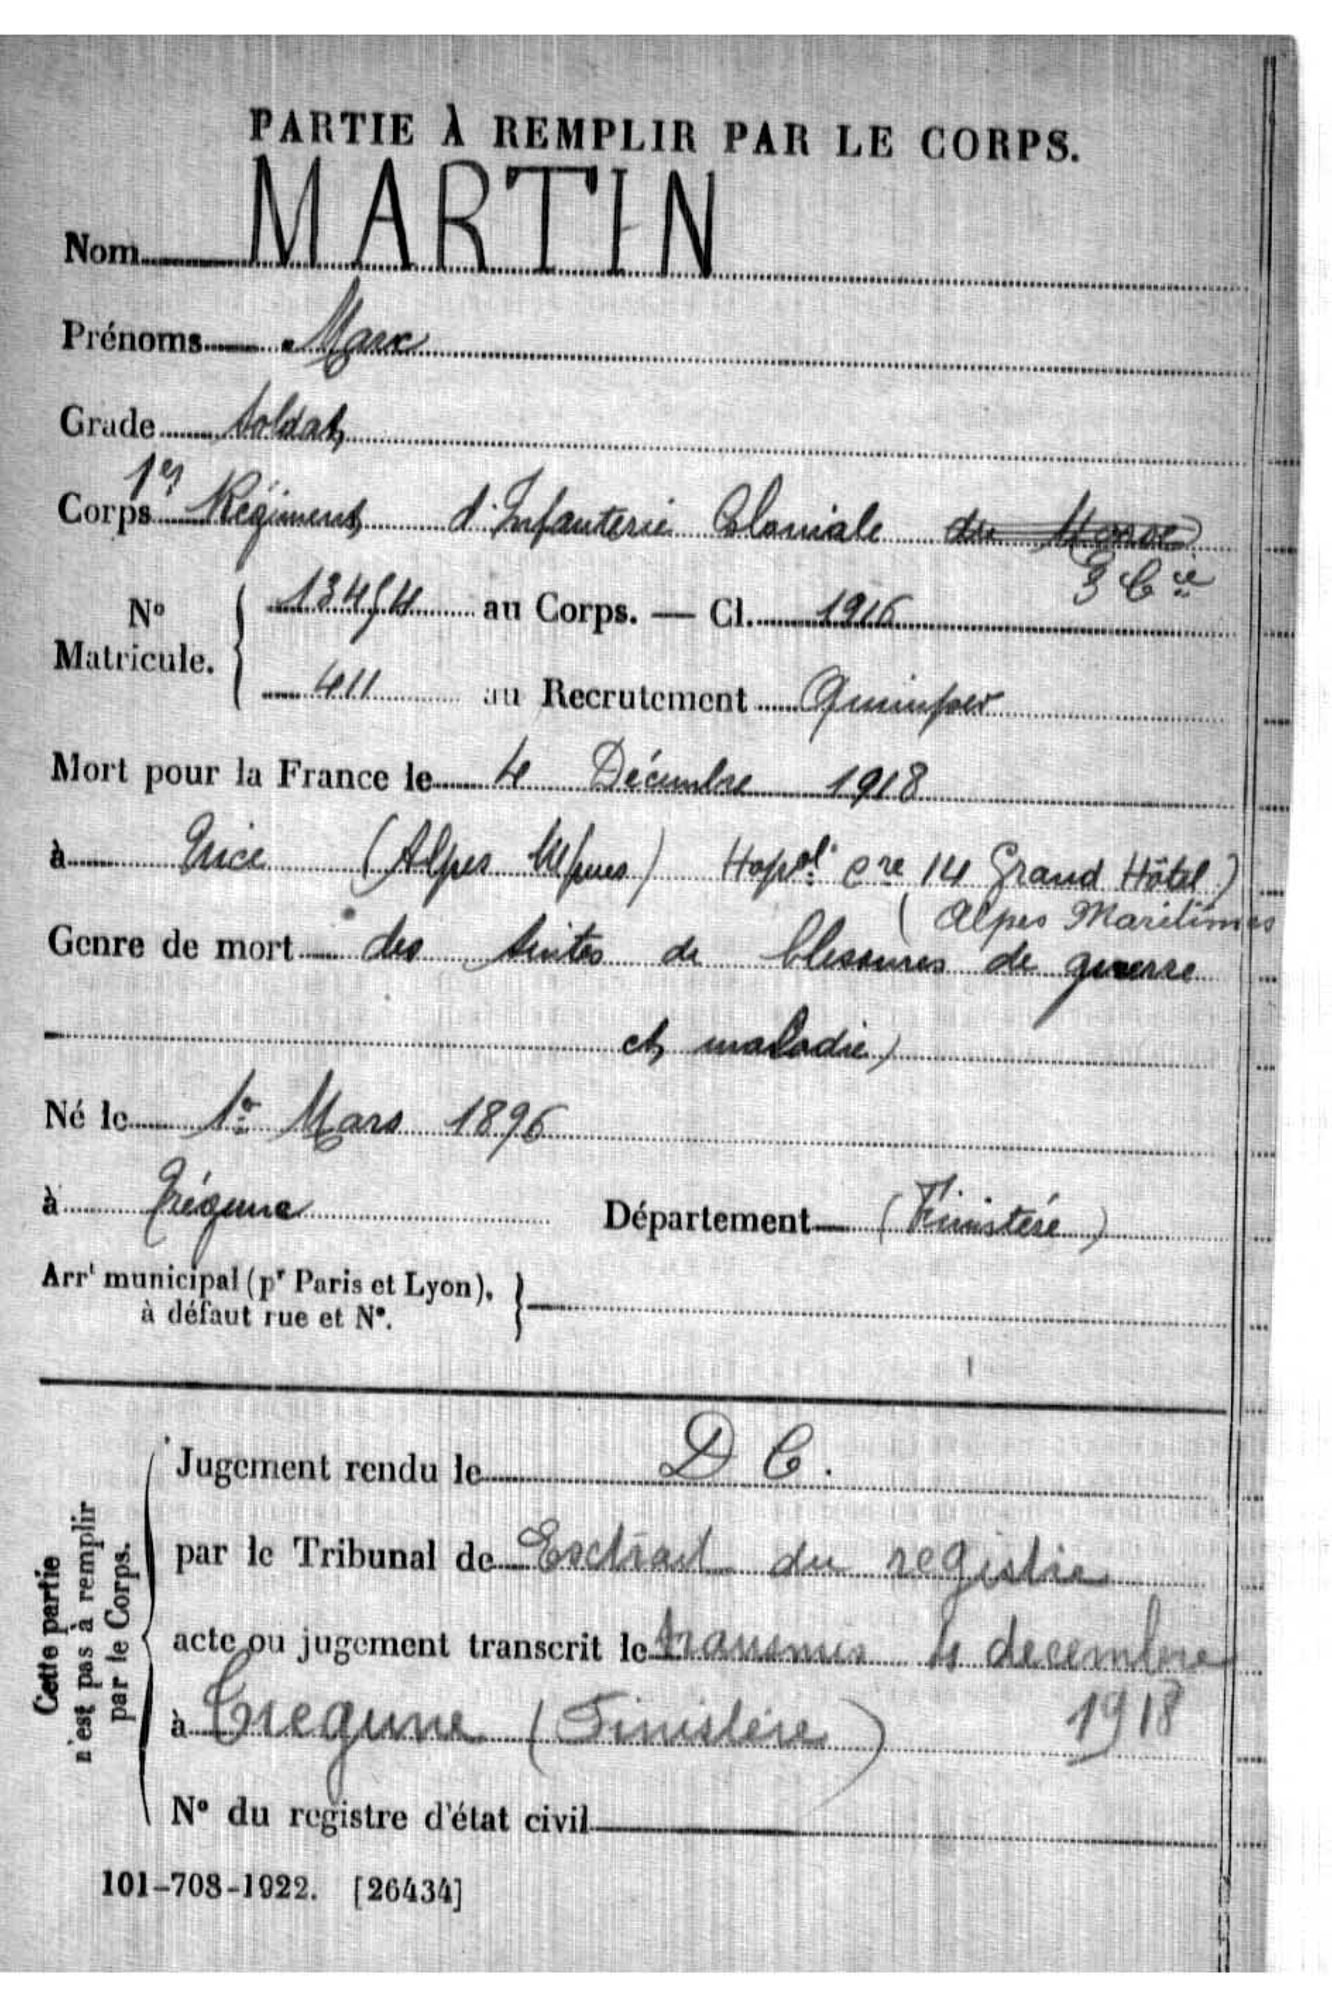 PARTIE À REMPLIR PAR LE CORPS.
Nom MARTIN
Prénoms Marc
Grade Soldat
1er
Corps Régiment d'Infanterie Coloniale du Maroc
3 Cie
N° Matricule. 13454 au Corps. — Cl. 1916
411 au Recrutement Quimper
Mort pour la France le 4 Décembre 1918
à Nice (Alpes Mmes) Hopal cre 14 Grand Hôtel)
(Alpes Maritimes
Genre de mort des suites de blessures de guerre
et maladie)
Né le 1er Mars 1896
à Trégunc Département (Finistère)
Arrt municipal (pr Paris et Lyon),
à défaut rue et N°.
Cette partie
n'est pas à remplir
par le Corps.
Jugement rendu le D C.
par le Tribunal de Extrait du registre
acte ou jugement transcrit le transmis 4 decembre
à Tregunc (Finistère) 1918
N° du registre d'état civil
101-708-1922. [26434]